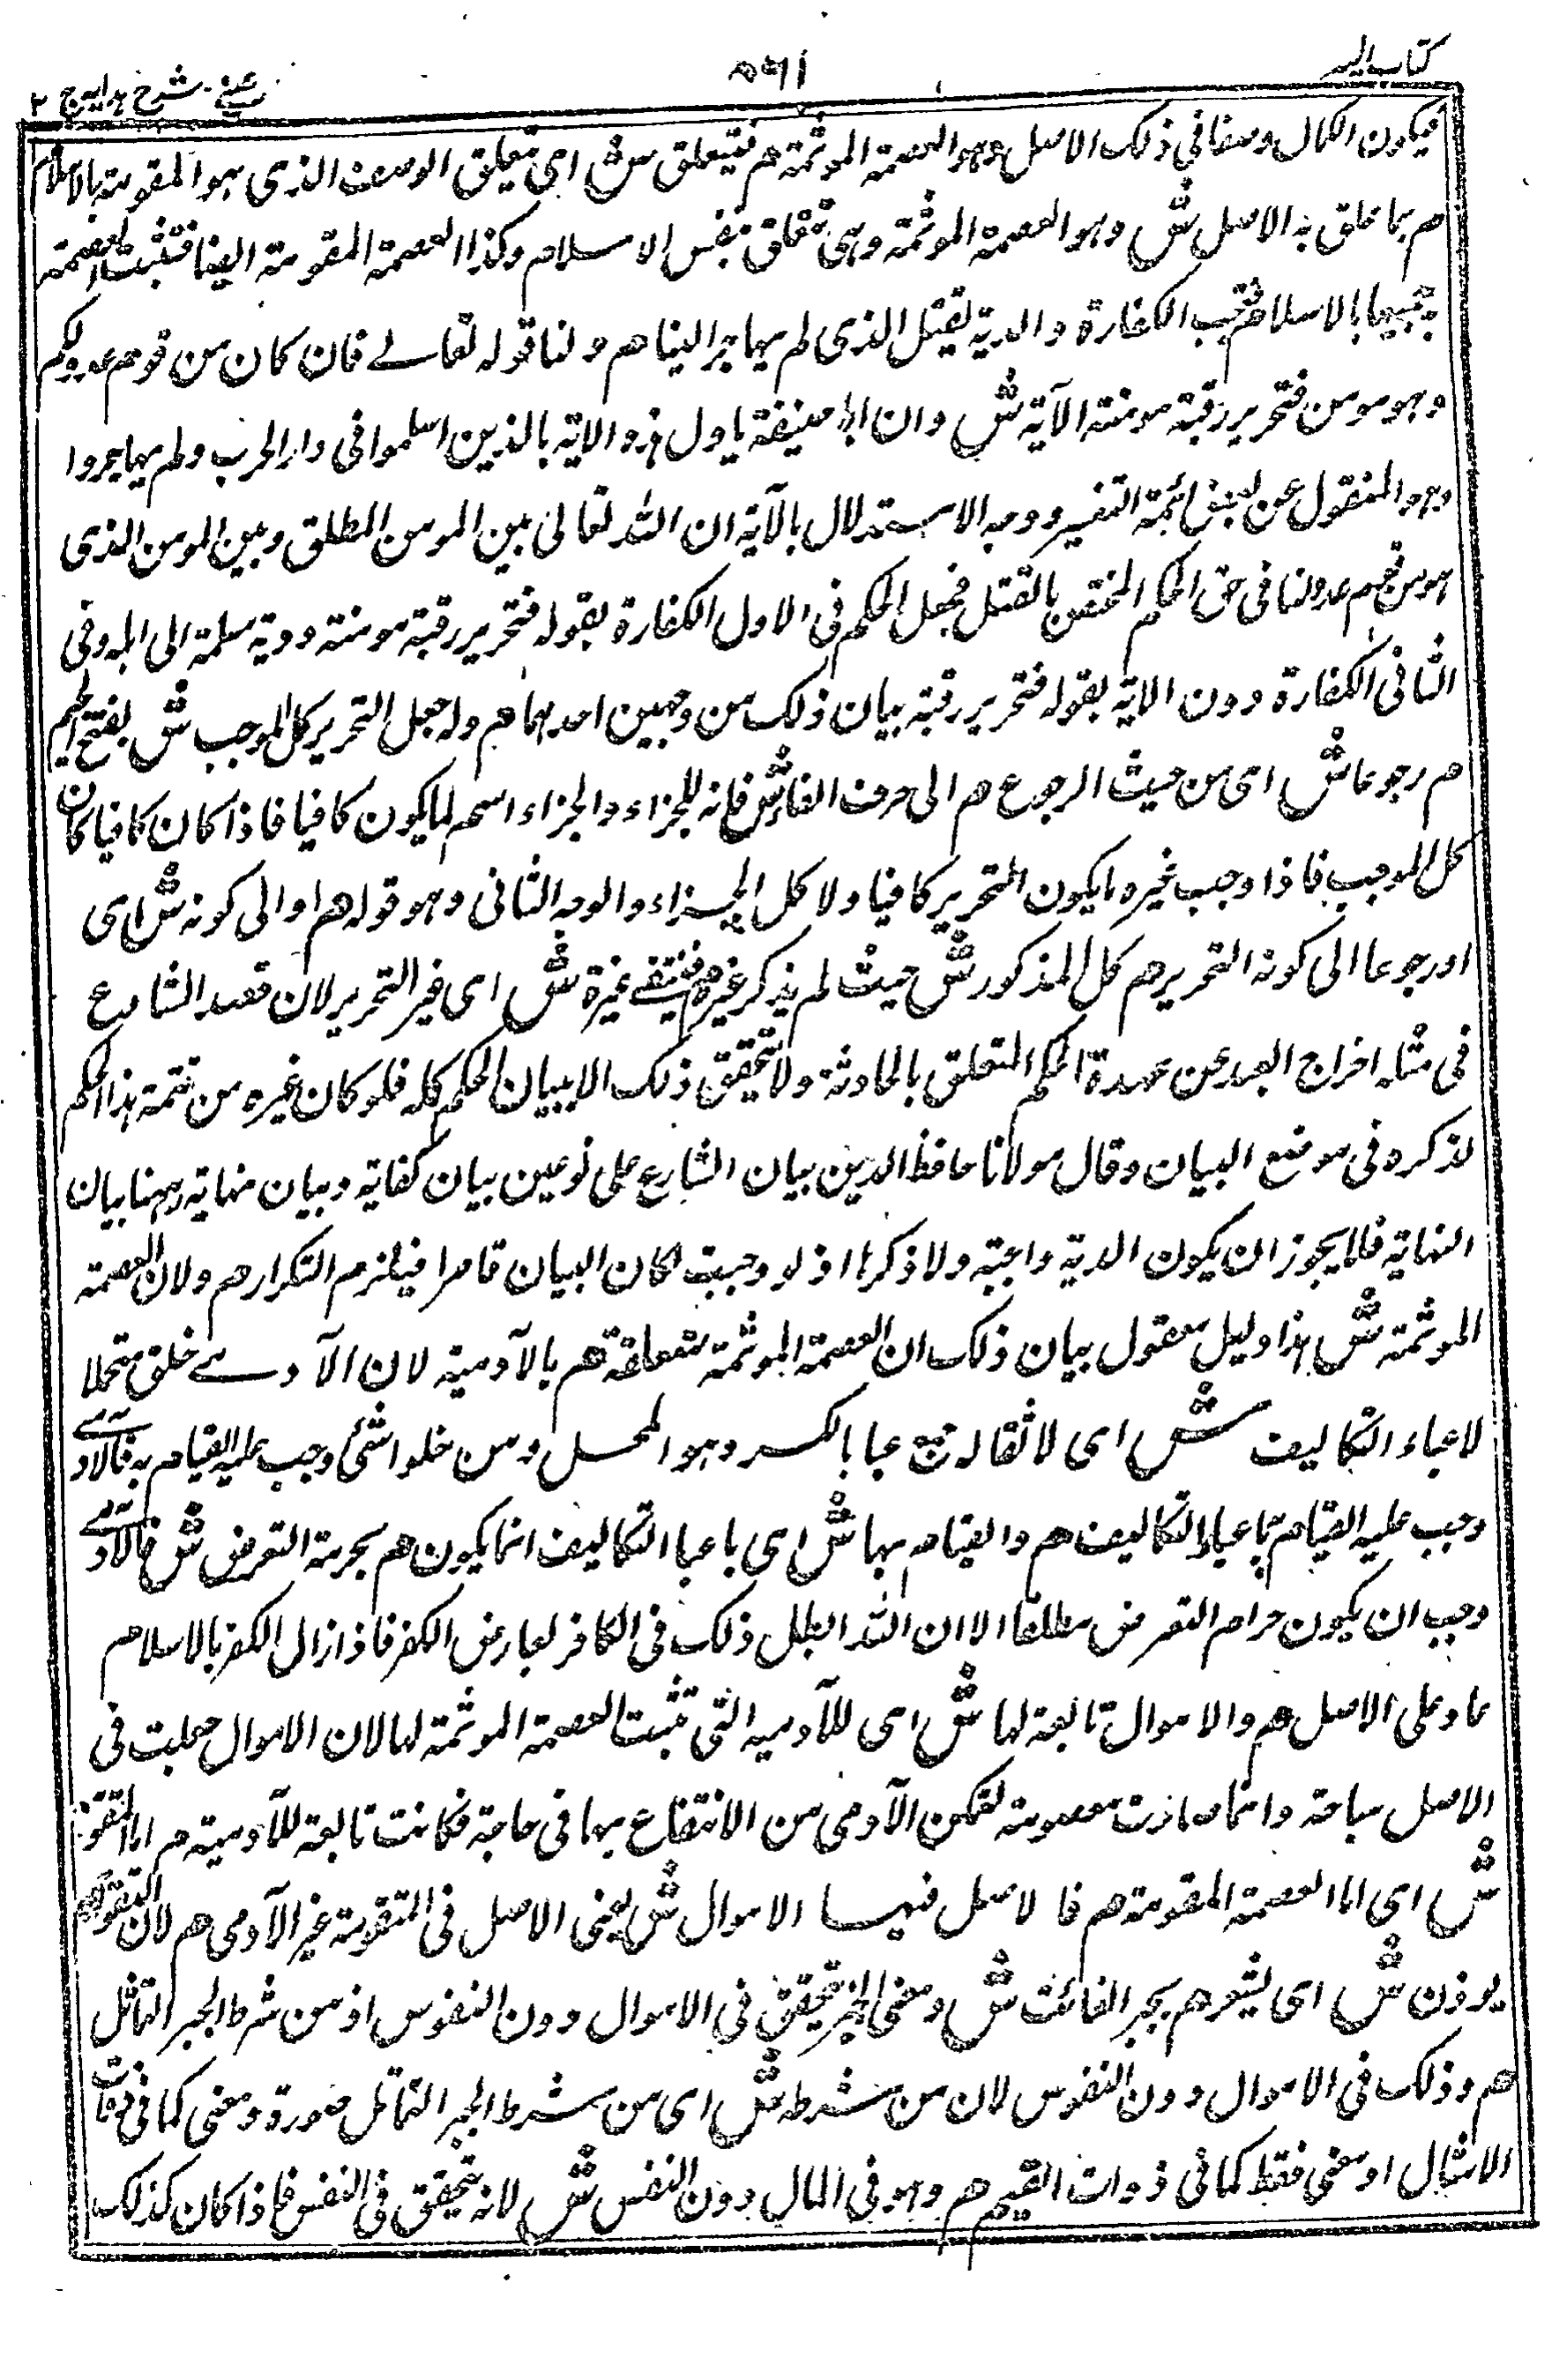 كتاب السير
۸۶۱
عيني شرح هدايہ ج ۲
فيكون الكمال وصفا في ذلك الاصل وهو العصمة الموثمة هم فتتعلق ش اى تتعلق الوصف الذى هو المقومة بالاسلام
هم بما علق به الاصل ش وهو العصمة الموثمة وهى تتعلق بنفس الاسلام وكذا العصمة المقومة ايضا فتثبت العصمة
بجميعها بالاسلام فتجب الكفارة والدية بقتل الذى لم يهاجر الينا هم ولنا قوله تعالى فان كان من قوم عدو لكم
وهو مومن فتحرير رقبة مومنة الآية ش وان ابا حنيفة ياول هذه الاية بالذين اسلموا في دار الحرب ولم يهاجروا
وهو المنقول عن بعض ائمة التفسير ووجه الاستدلال بالآية ان الله تعالى بين المومن المطلق وبين المومن الذى
هو من قوم عدو لنا في حق الحكم المختص بالقتل فجعل الحكم في الاول الكفارة بقوله فتحرير رقبة مومنة ودية مسلمة الى اهله وفي
الثاني الكفارة دون الاية بقوله فتحرير رقبة بيان ذلك من وجهين احدهما هم وله جعل التحرير كل الموجب ش بفتح الجيم
هم رجوعا ش اى من حيث الرجوع هم الى حرف الفاء ش فانه للجزاء والجزاء اسم لما يكون كافيا فاذا كان كافيا كان
كل الموجب فاذا وجب غيره ما يكون التحرير كافيا ولا كل الجزاء والوجه الثاني وهو قوله هم او الى كونه ش اى
او رجوعا الى كونه التحرير هم كل المذكور ش حيث لم يذكر غيره هم فينتفى غيره ش اى غير التحرير لان قصد الشارع
في مثله اخراج العبد عن عهدة الحكم المتعلق بالحادثة ولا يتحقق ذلك الا ببيان الحكم كله فلو كان غيره من تتمة هذا الحكم
لذكره في موضع البيان وقال مولانا حافظ الدين بيان الشارع على نوعين بيان كفاية وبيان نهاية وههنا بيان
النهاية فلا يجوز ان يكون الدية واجبة ولا ذكرها اذ لو وجبت لكان البيان قاصرا فيلزم التكرار هم ولان العصمة
الموثمة ش هذا دليل معقول بيان ذلك ان العصمة الموثمة متعلقة هم بالآدمية لان الآدمے خلق متحملا
لاعباء التكاليف ش اى لاثقاله جمع عبا بالكسر وهو الحمل ومن خلو اشئ وجب عليه القيام به فالآدمے
وجب عليه القيام باعباء التكاليف هم والقيام بها ش اى باعبا التكاليف انما يكون هم بحرمة التعرض ش فالآدمے
وجب ان يكون حرام التعرض مطلقا الا ان الله ابطل ذلك في الكافر لعارض الكفر فاذا زال الكفر بالاسلام
عاد على الاصل هم والاموال تابعة لها ش اى للآدميه التي تثبت العصمة الموثمة لها لان الاموال جعلت في
الاصل مباحة وانما صارت معصومة لتمكن الآدمى من الانتفاع بها في حاجة فكانت تابعة للآدمية هم اما المتقومة
ش اى اما العصمة المقومة هم فالاصل فيها الاموال ش يعنى الاصل في المتقومة غير الآدمى هم لان التقوم
يوذن ش اى يشعر هم بجبر الفائت ش ومعنى الجبر يتحقق في الاموال دون النفوس اذ من شرط الجبر التماثل
هم وذلك في الاموال دون النفوس لان من شرطه ش اى من شرط الجبر التماثل صورة ومعنى كما في ذوات
الامثال او معنى فقط كما في ذوات القيم هم وهو في المال دون النفس ش لانه يتحقق في النفس فاذا كان كذلك